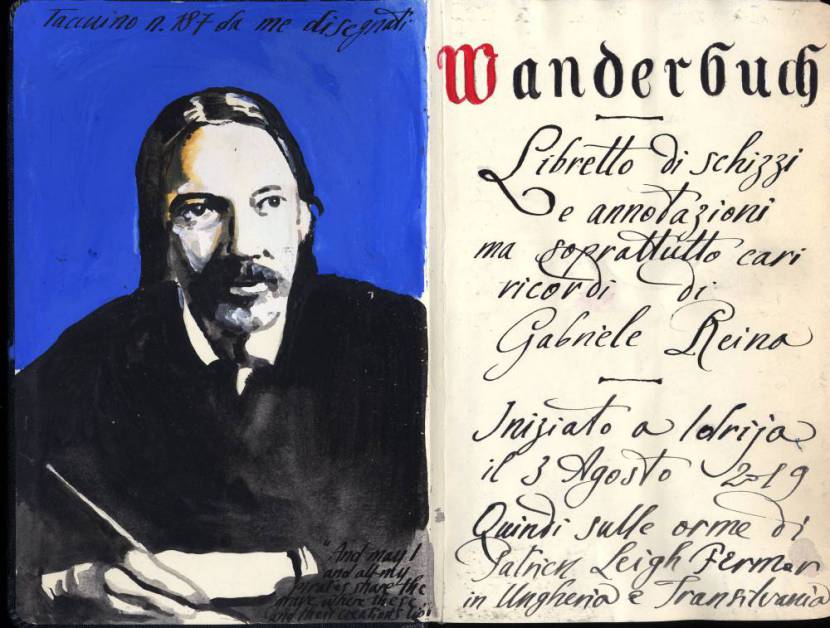 Taccuino n. 187 da me disegnati
"And may I
and all my
pirates share the
grave where these
and their creations lie!"
Wanderbuch
Libretto di schizzi
e annotazioni
ma soprattutto cari
ricordi di
Gabriele Reina
Iniziato a Idrija
il 3 Agosto 2019
Quindi sulle orme di
Patrick Leigh Fermor
in Ungheria e Transilvania